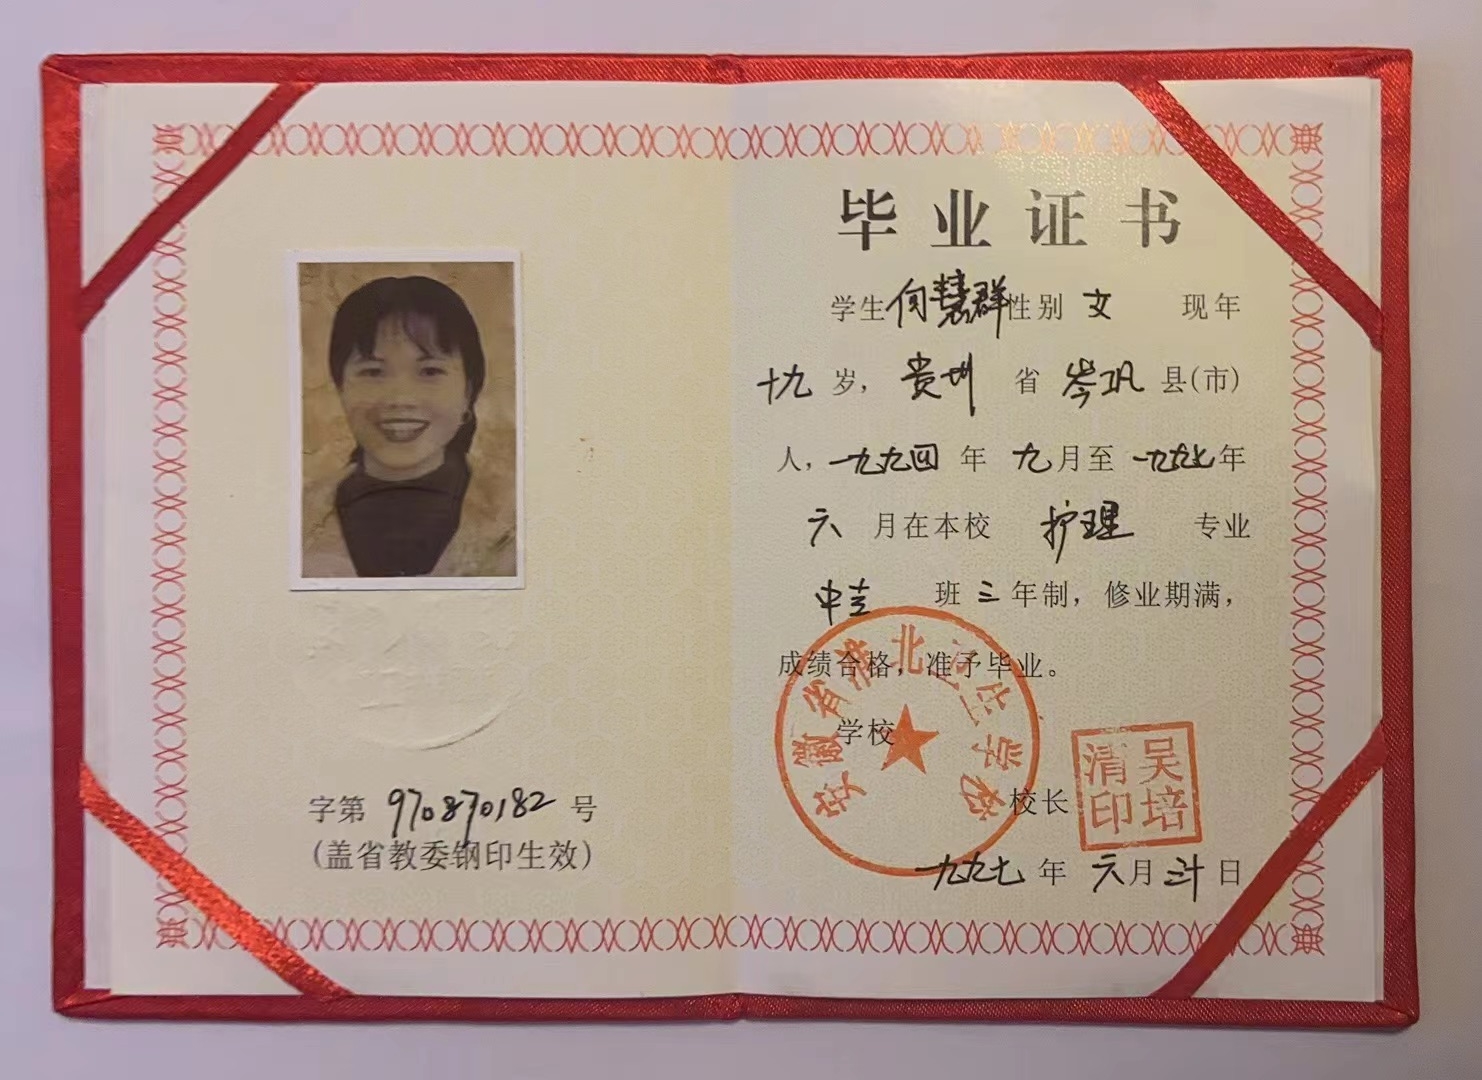 毕业证书
学生何慧群性别女 现年
十九岁，贵州省岑巩县(市)
人，一九九四年九月至一九九七年
六月在本校 护理 专业
中专 班三年制，修业期满，
成绩合格，准予毕业。
学校
校长
一九九七年六月三十日
安徽省淮北卫生学校
吴培清印
字第970870182号
(盖省教委钢印生效)